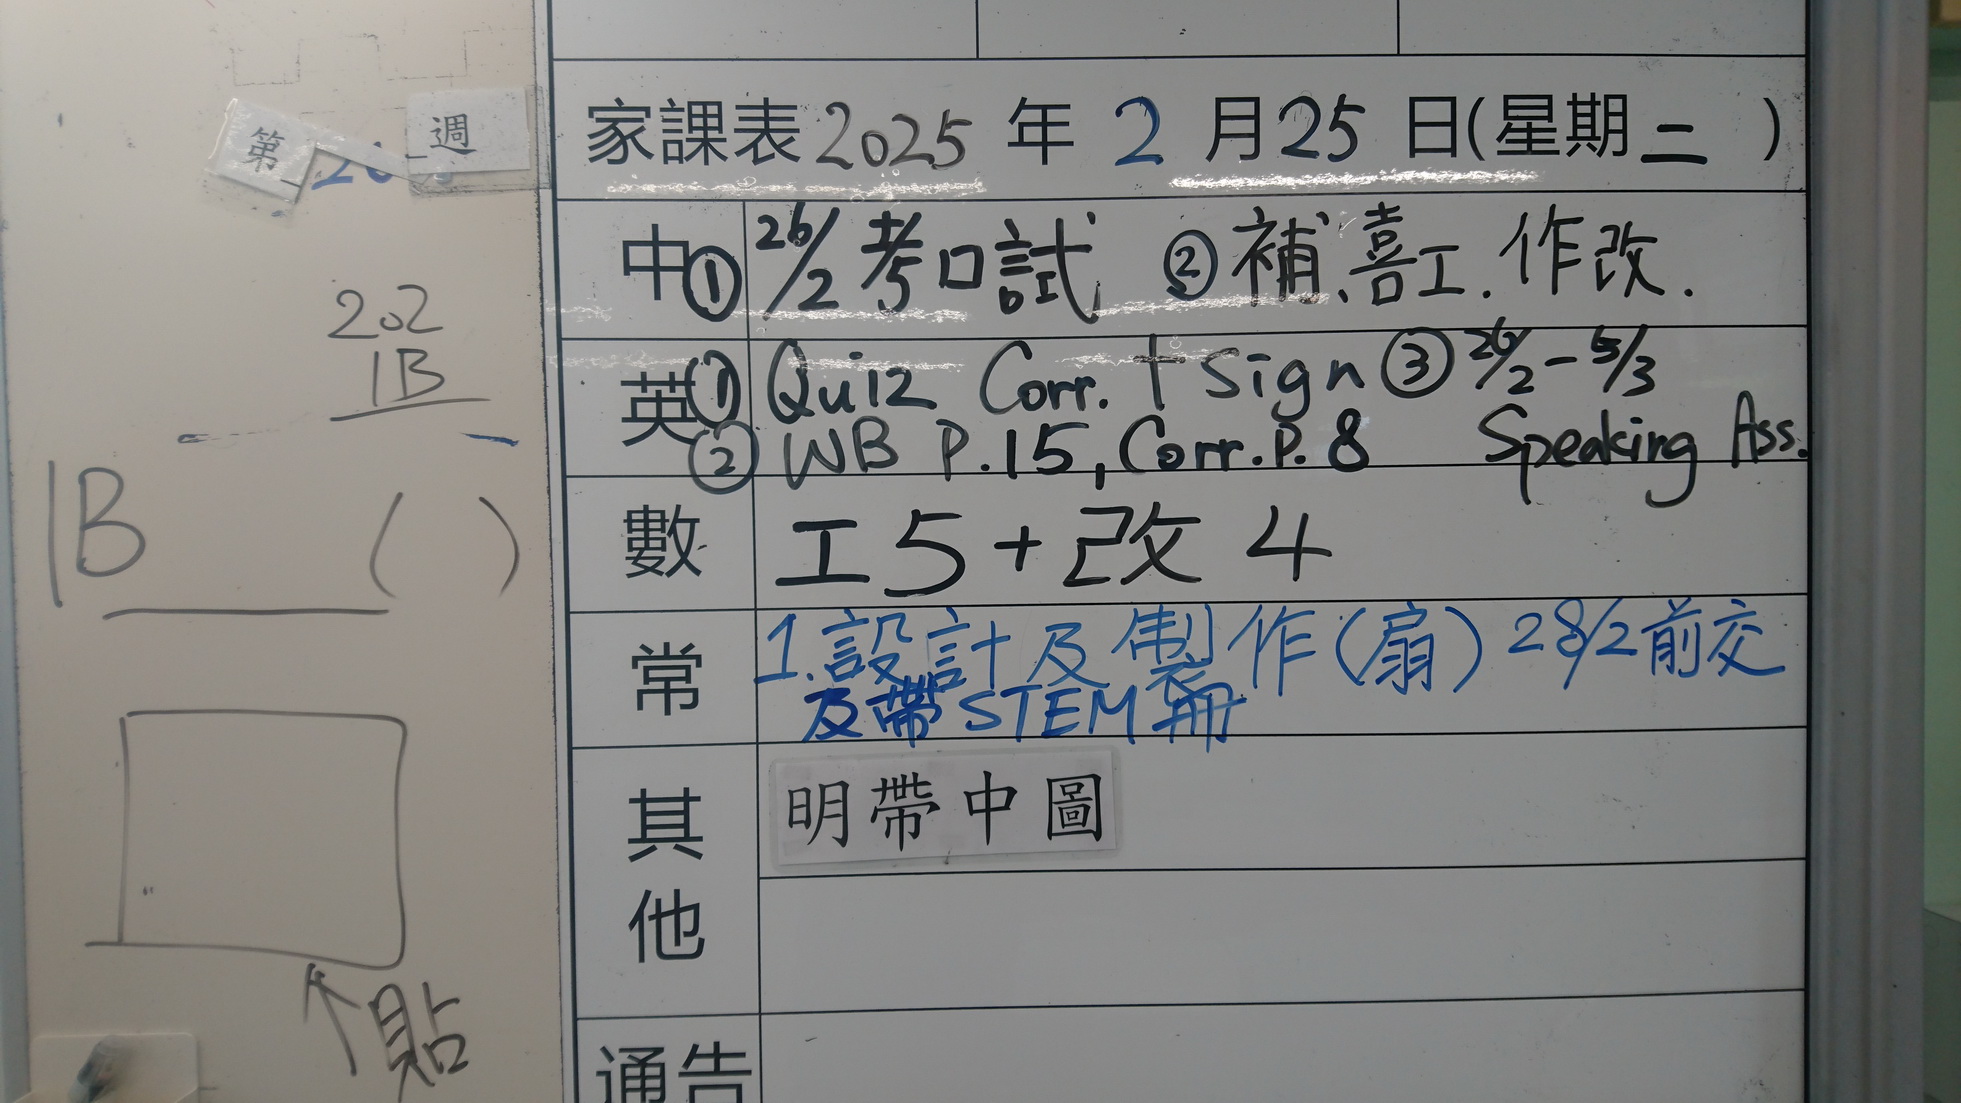 第 週
202
1B
1B ( )
↑貼
家課表2025年2月25日(星期二)
中 ① 26/2 考口試 ② 補、喜工. 作改.
英 ① Quiz Corr. + sign ③ 26/2 - 5/3
② WB P.15, Corr. P. 8 Speaking Ass.
數 工5+改4
常 1.設計及製作(扇) 28/2前交
及帶STEM冊
其他 明帶中圖
通告